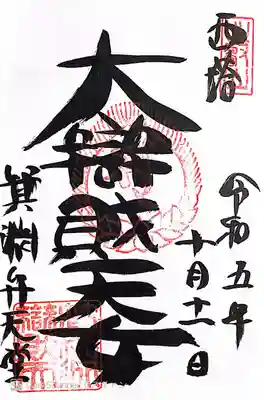 西塔
令和五年
十月十一日
大辯財天女
箕淵弁天堂